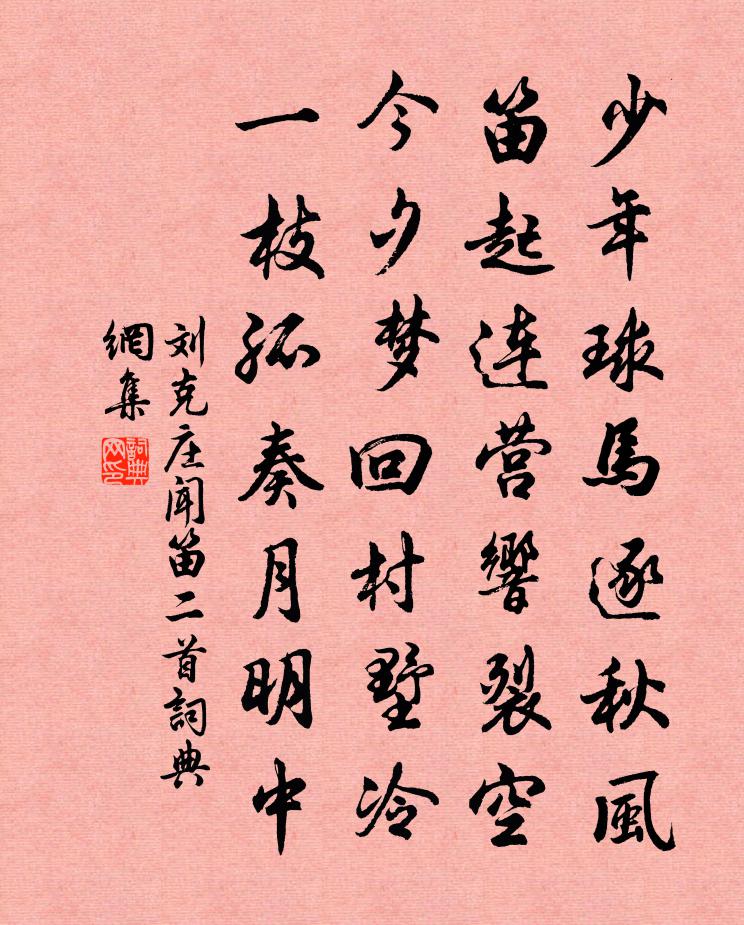 少年球馬逐秋風
笛起连营響裂空
今夕梦回村墅冷
一枝孤奏月明中
刘克庄闻笛二首詞典
網集
詞典网印